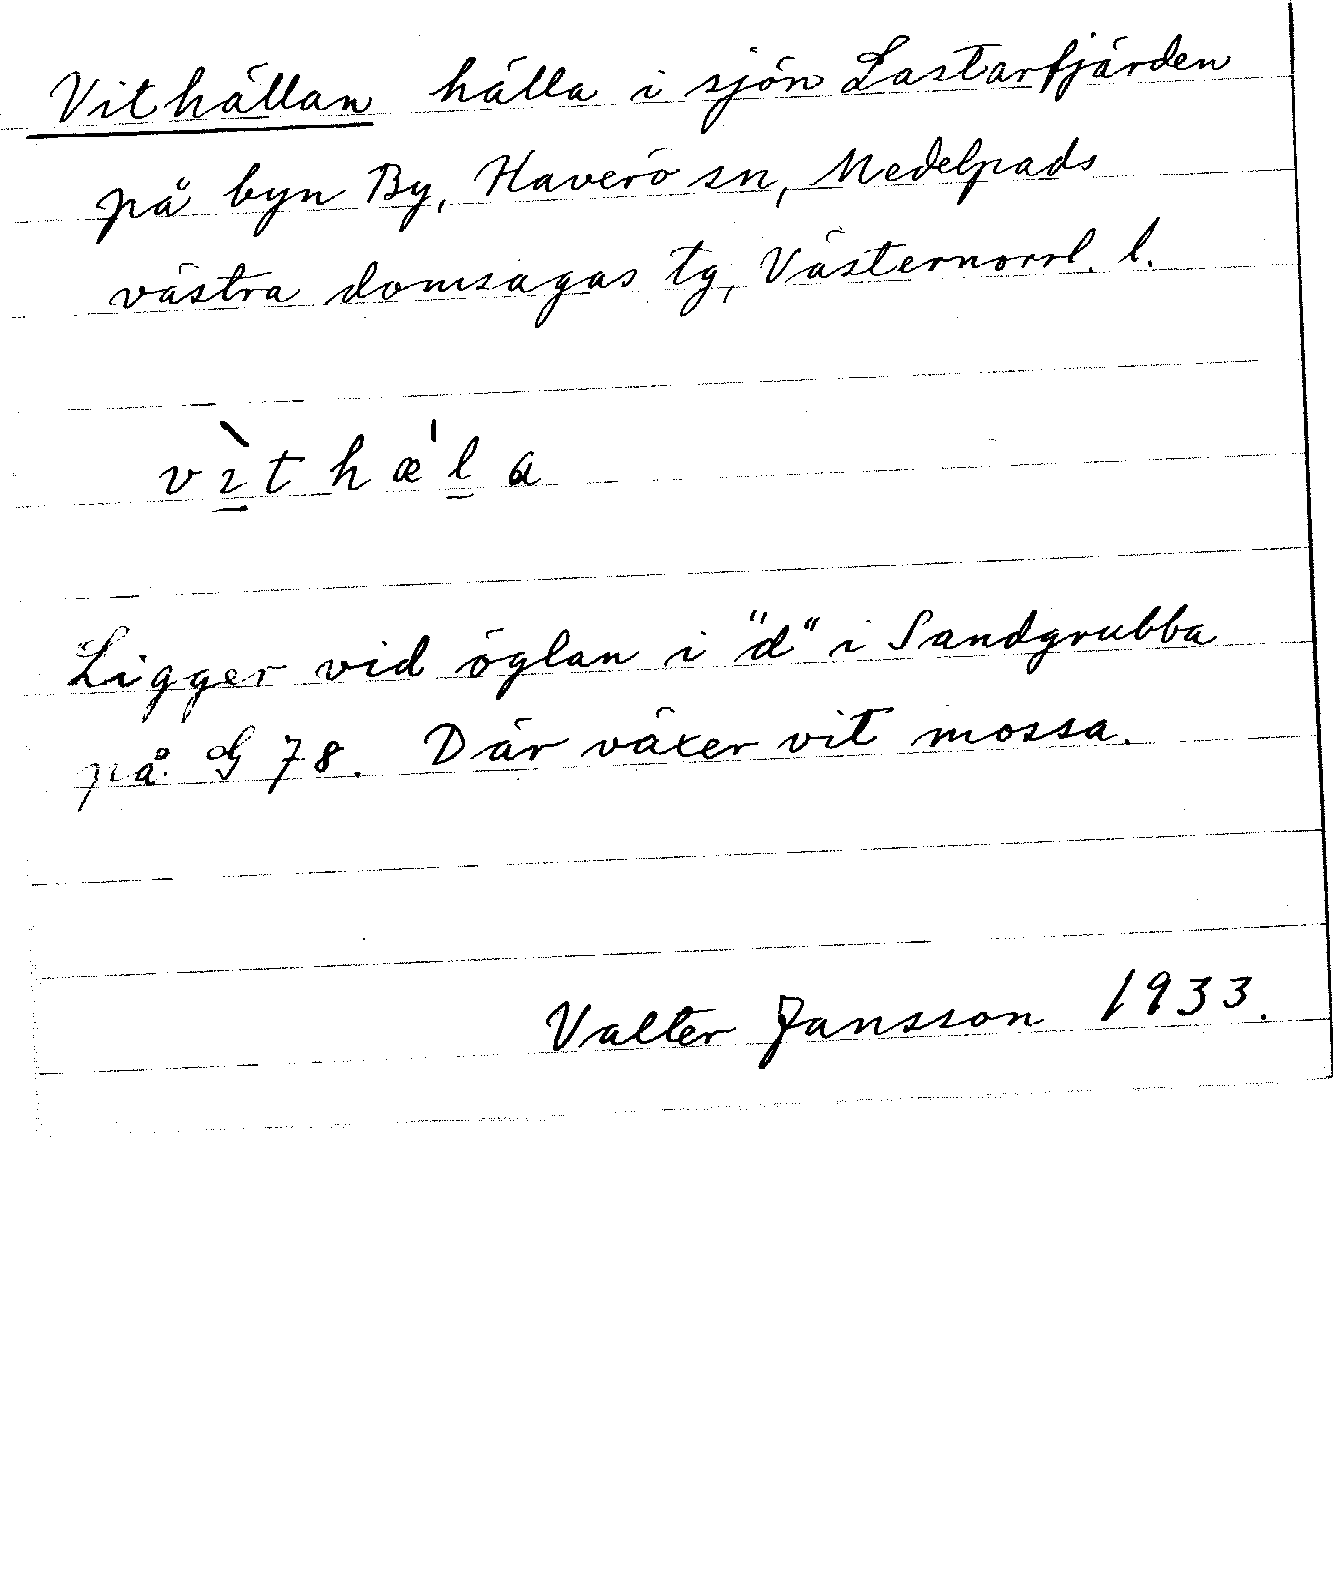 Vithällan hälla i sjön Lastarfjärden
på byn By, Haverö sn, Medelpads
västra domsagas tg, Västernorrl. l.
vı̲̀thæ´l̲a
Ligger vid öglan i "d" i Sandgrubba
på G 78. Där växer vit mossa.
Valter Jansson 1933.